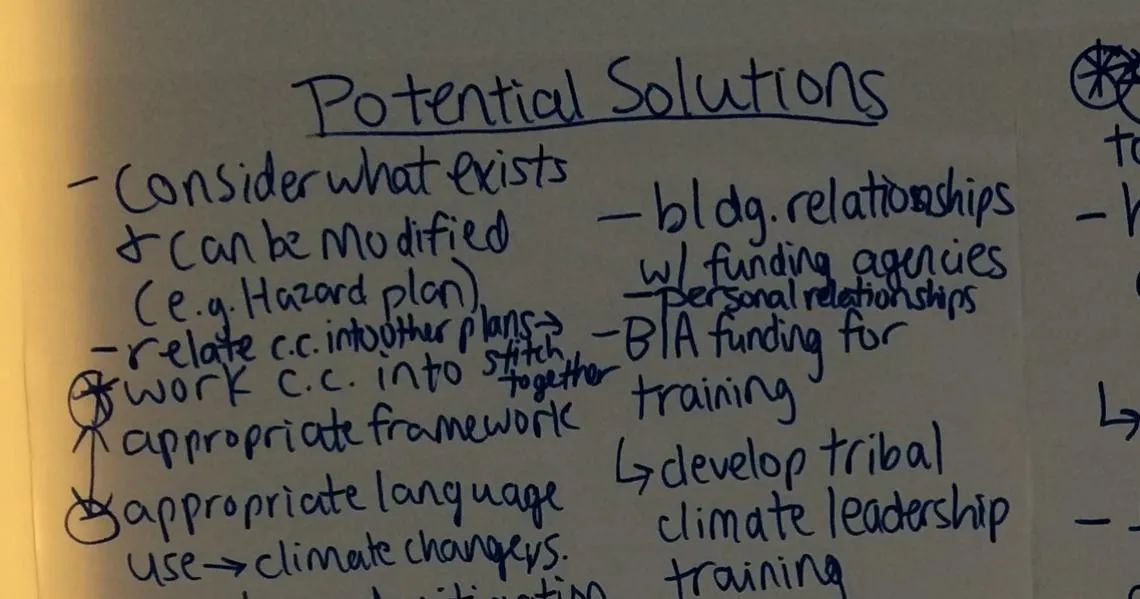 Potential Solutions
- Consider what exists
& can be modified
(e.g. Hazard plan)
- relate c.c. into other plans → stitch together
work c.c. into
appropriate framework
appropriate language
use → climate change vs.
- bldg. relationships
w/ funding agencies
- personal relationships
- BIA funding for
training
↳ develop tribal
climate leadership
training